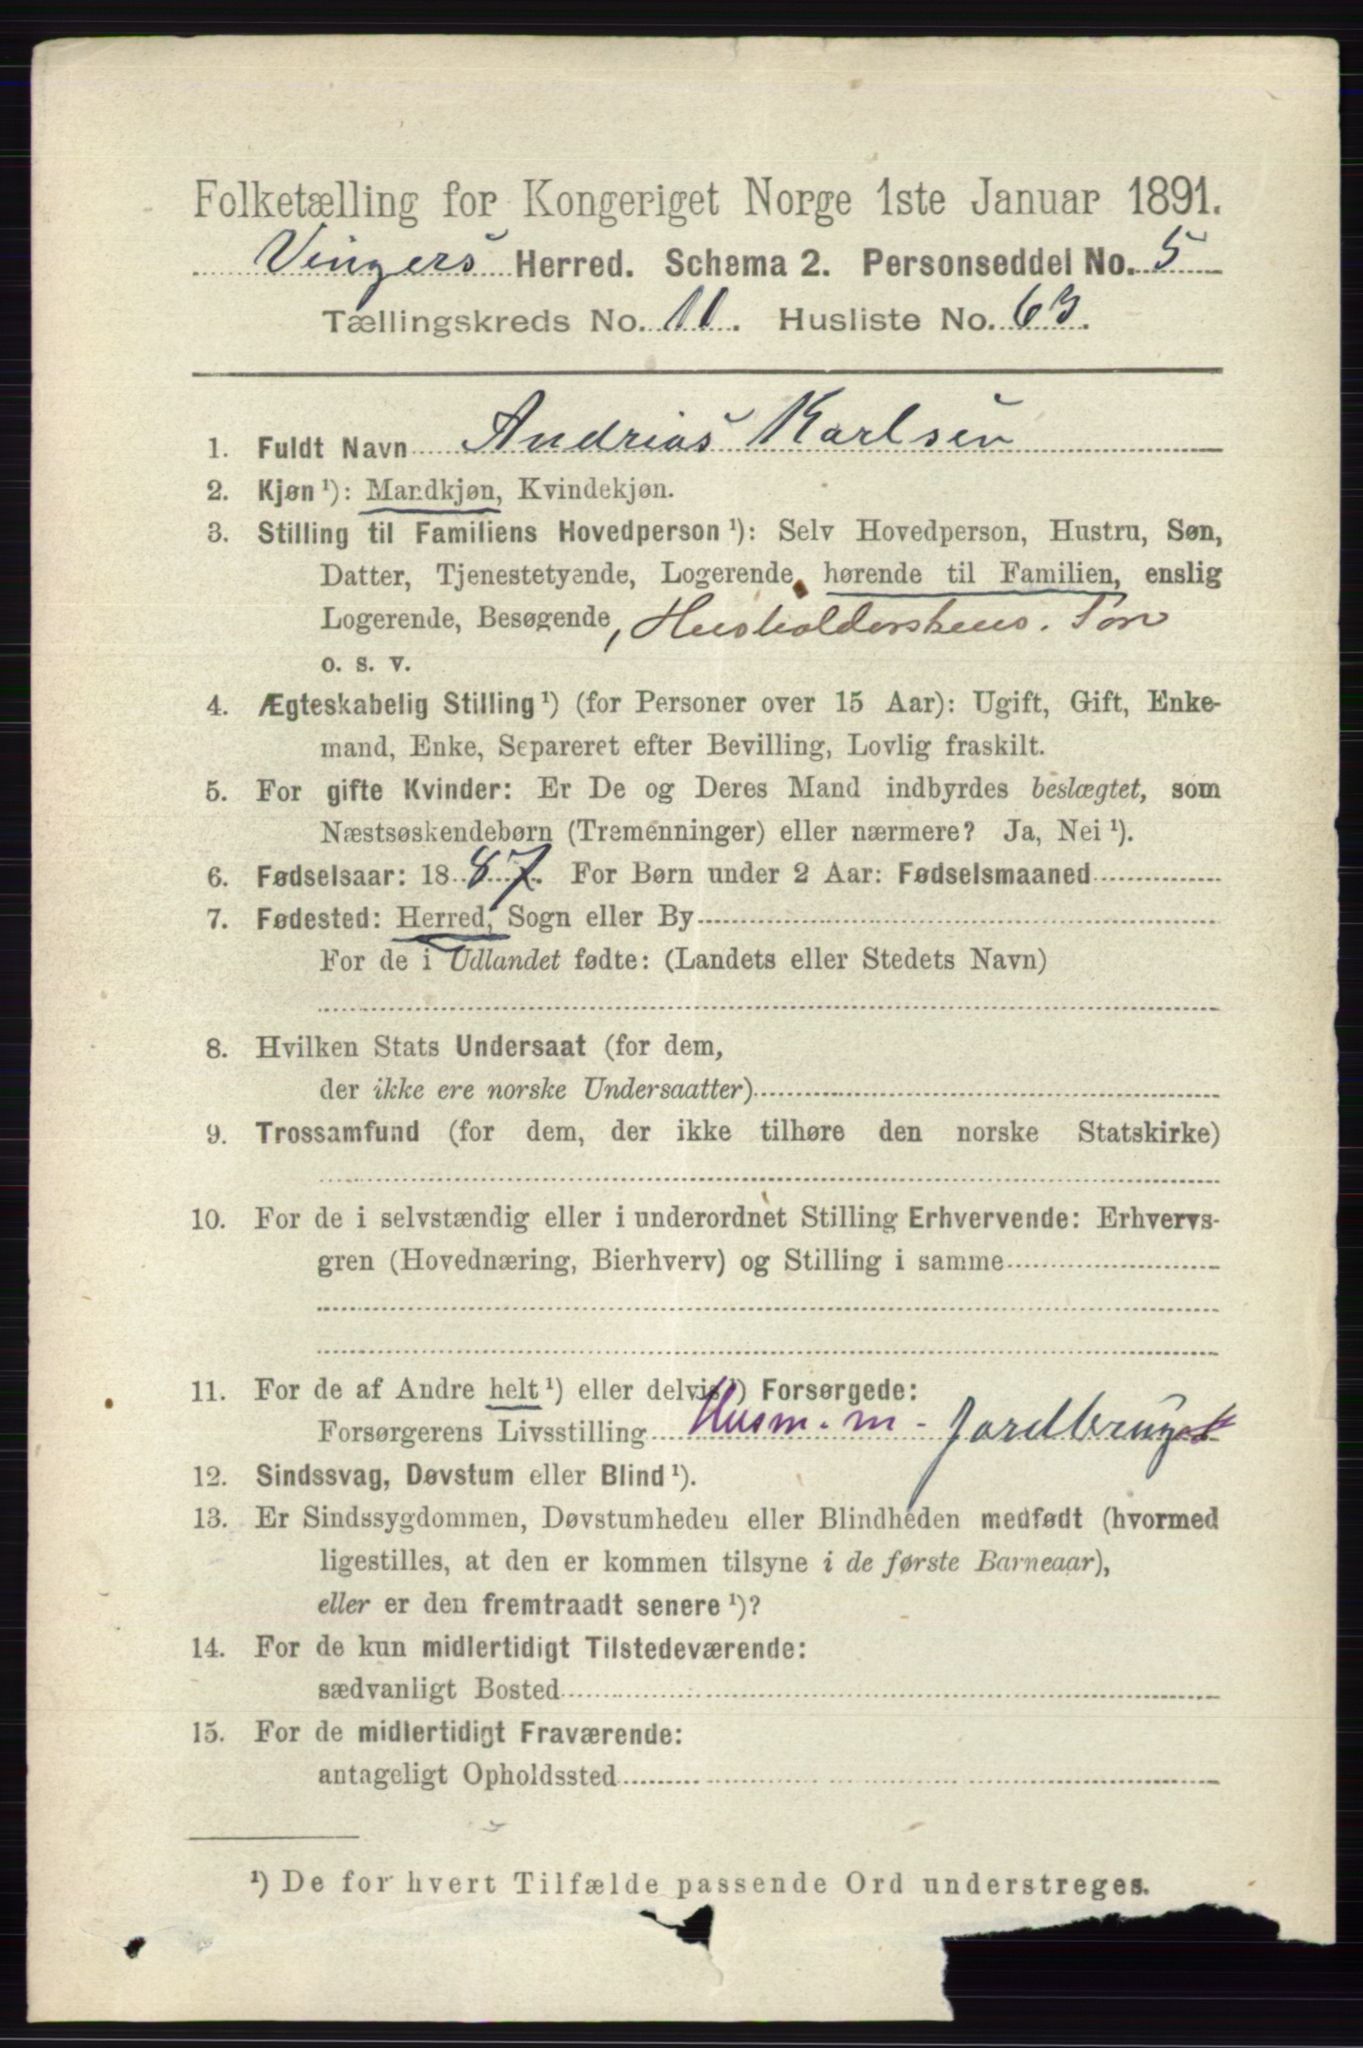 Folketælling for Kongeriget Norge 1ste Januar 1891.
Vingers Herred. Schema 2. Personseddel No. 5
Tællingskreds No. 11. Husliste No. 63.
1. Fuldt Navn Andrias Karlsen
2. Kjøn ¹): Mandkjøn, Kvindekjøn.
3. Stilling til Familiens Hovedperson ¹): Selv Hovedperson, Hustru, Søn,
Datter, Tjenestetyende, Logerende, hørende til Familien, enslig
Logerende, Besøgende, Husholderskens. Søn
o. s. v.
4. Ægteskabelig Stilling ¹) (for Personer over 15 Aar): Ugift, Gift, Enke-
mand, Enke, Separeret efter Bevilling, Lovlig fraskilt.
5. For gifte Kvinder: Er De og Deres Mand indbyrdes beslægtet, som
Næstsøskendebørn (Tremenninger) eller nærmere? Ja, Nei ¹).
6. Fødselsaar: 1887. For Børn under 2 Aar: Fødselsmaaned
7. Fødested: Herred, Sogn eller By
For de i Udlandet fødte: (Landets eller Stedets Navn)
8. Hvilken Stats Undersaat (for dem,
der ikke ere norske Undersaatter)
9. Trossamfund (for dem, der ikke tilhøre den norske Statskirke)
10. For de i selvstændig eller i underordnet Stilling Erhvervende: Erhvervs-
gren (Hovednæring, Bierhverv) og Stilling i samme
11. For de af Andre helt ¹) eller delvis ¹) Forsørgede:
Forsørgerens Livsstilling Husm. m - Jordbrug
12. Sindssvag, Døvstum eller Blind ¹).
13. Er Sindssygdommen, Døvstumheden eller Blindheden medfødt (hvormed
ligestilles, at den er kommen tilsyne i de første Barneaar),
eller er den fremtraadt senere ¹)?
14. For de kun midlertidigt Tilstedeværende:
sædvanligt Bosted
15. For de midlertidigt Fraværende:
antageligt Opholdssted
¹) De for hvert Tilfælde passende Ord understreges.